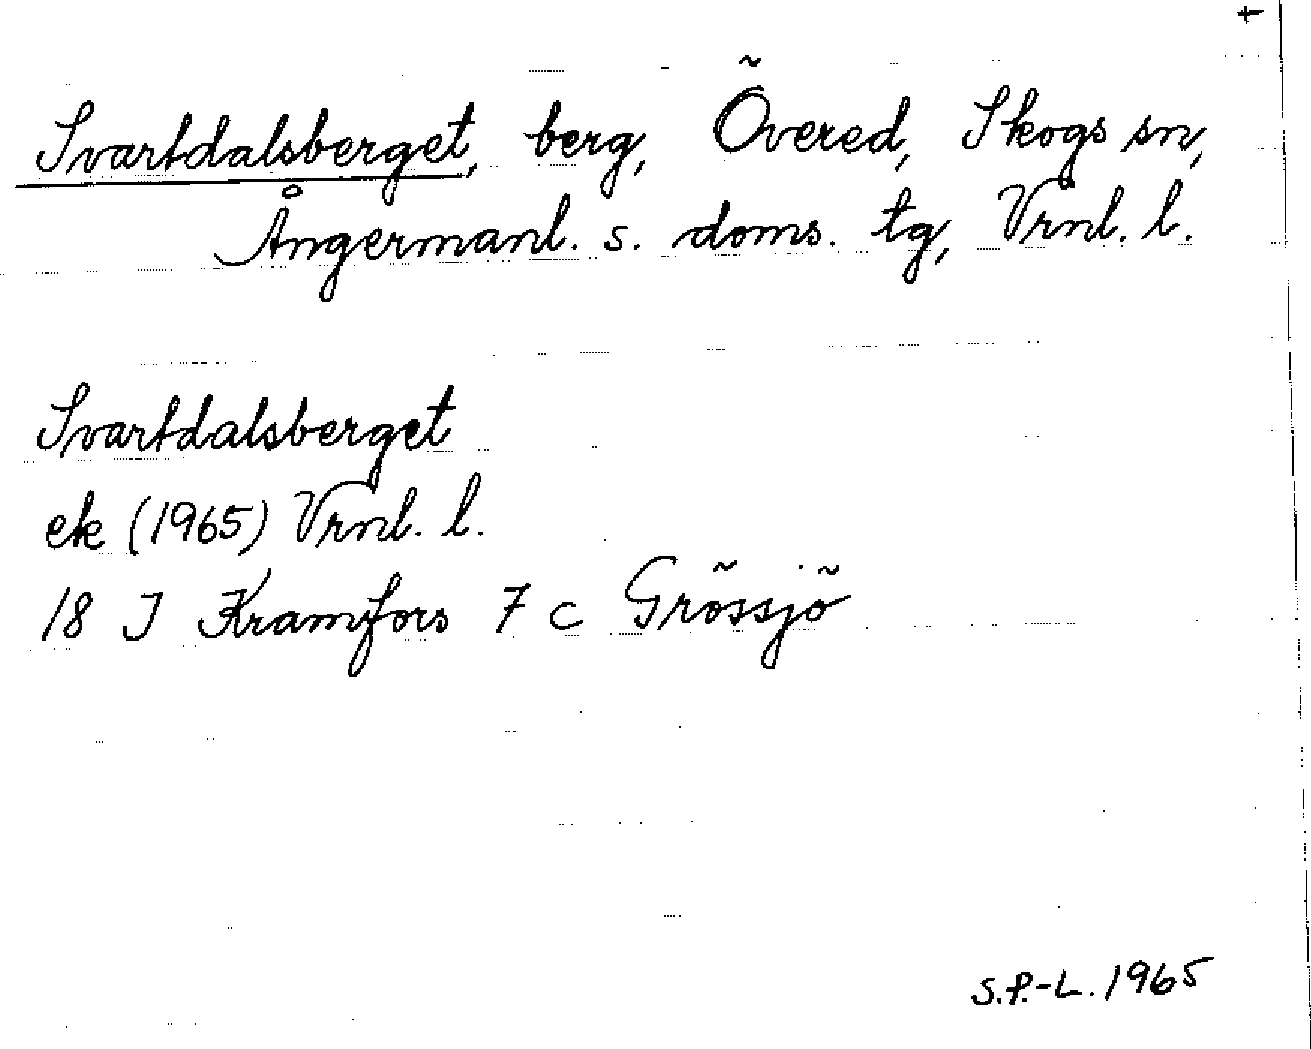 Svartdalsberget, berg, Övered, Skogs sn,
Ångermanl. s. doms. tg, Vrnl. l.
Svartdalsberget
ek (1965) Vrnl. l.
18 J Kramfors 7 c Grössjö
S.P.-L. 1965